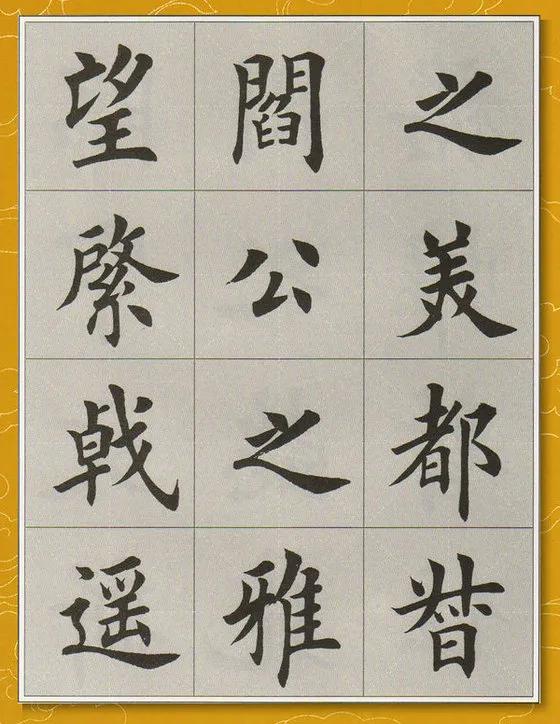 之美都督
閻公之雅
望綮戟遥